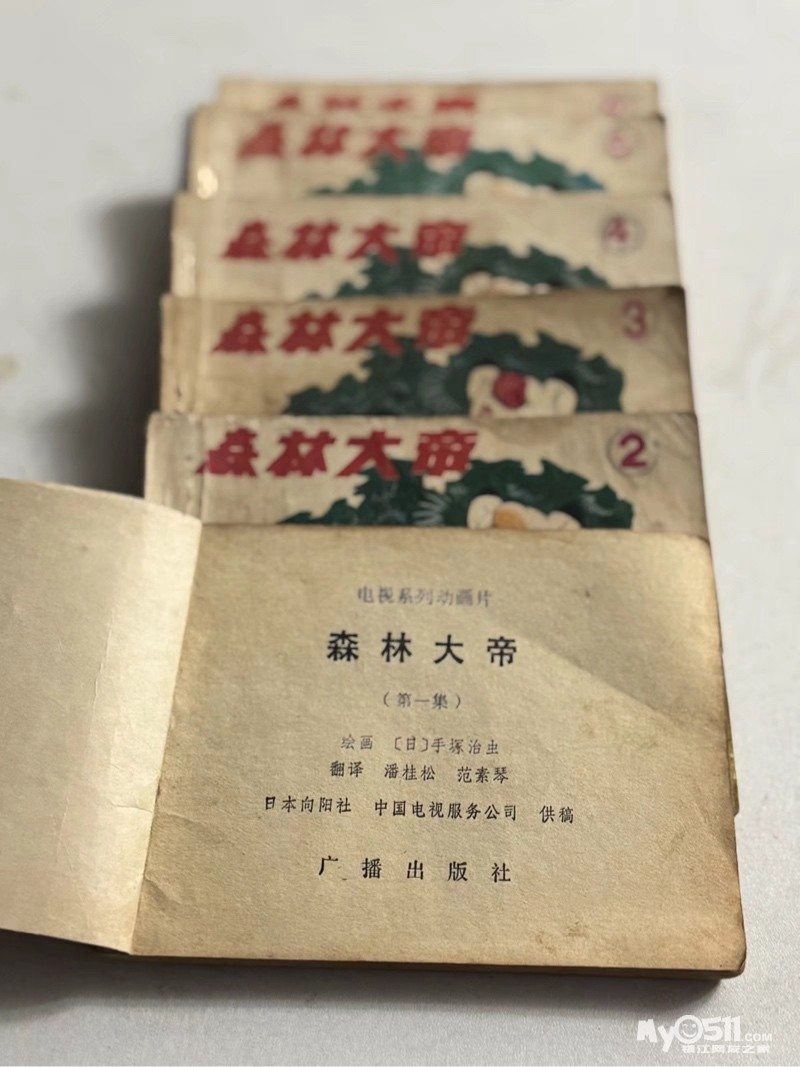 森林大帝
森林大帝 5
森林大帝 4
森林大帝 3
森林大帝 2
电视系列动画片
森林大帝
（第一集）
绘画 〔日〕手塚治虫
翻译 潘桂松 范素琴
日本向阳社 中国电视服务公司 供稿
广播出版社
My0511.COM
镇江网友之家